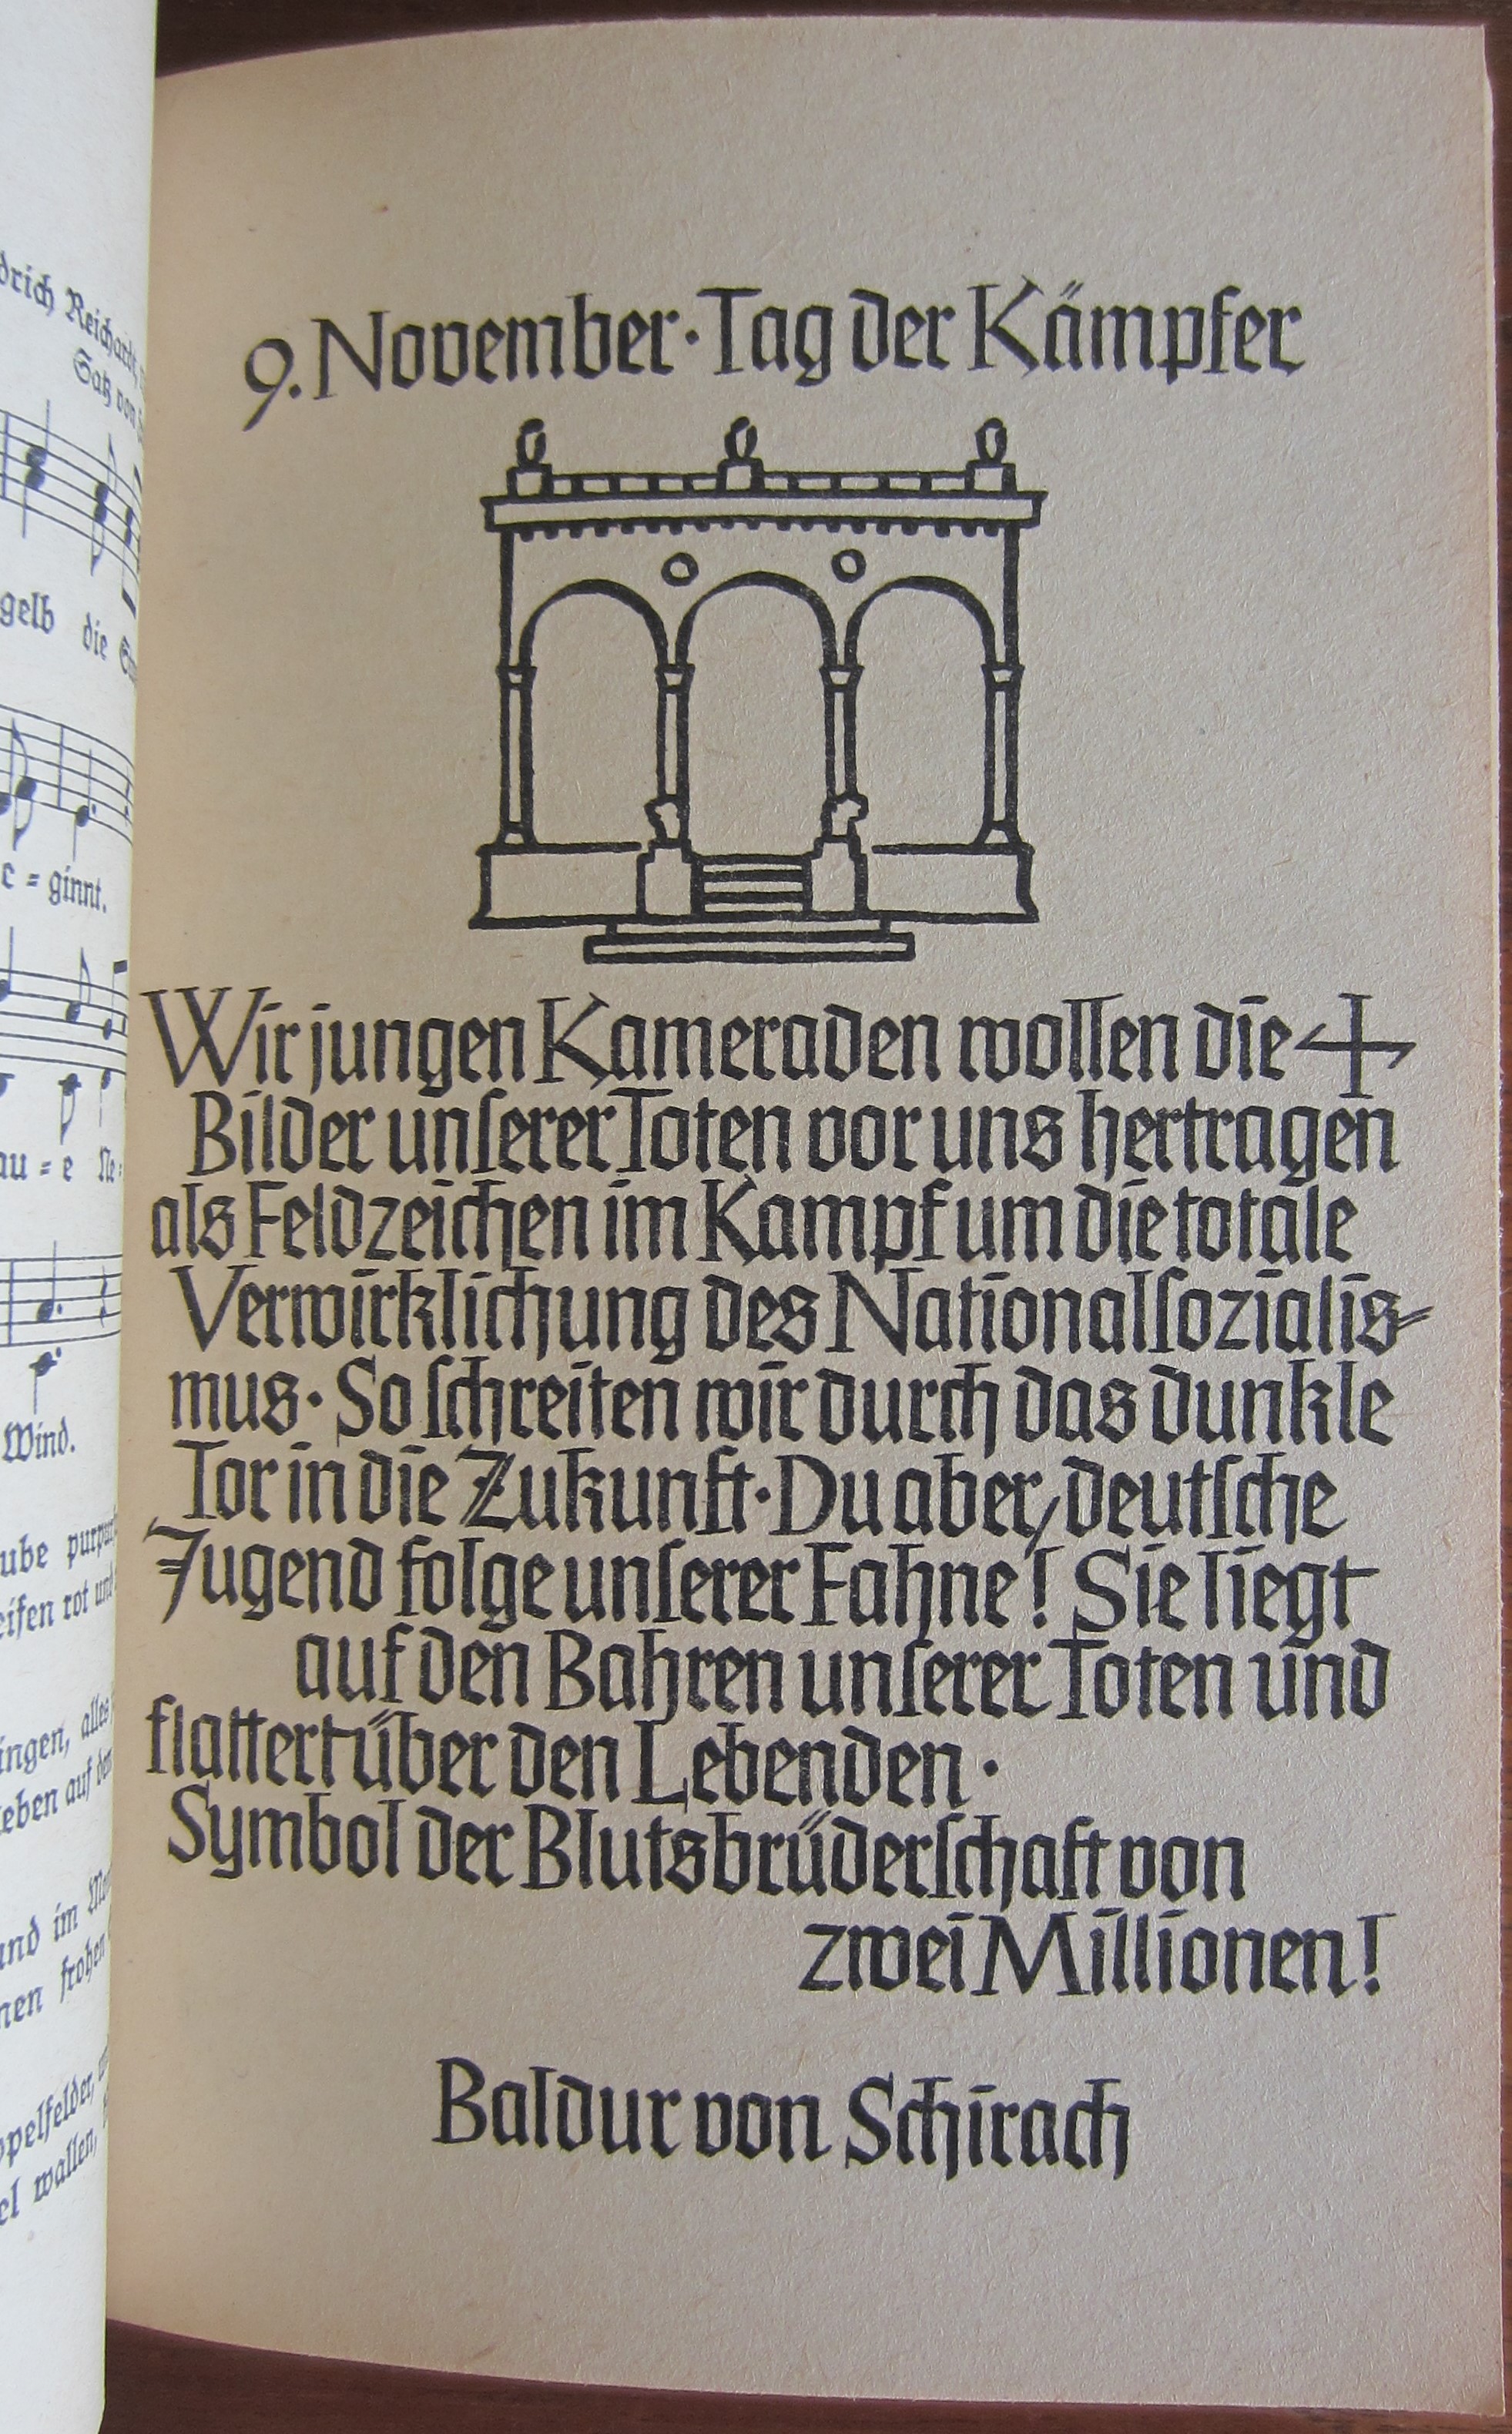 drich Reichardt,
Satz von
gelb die
c = ginnt.
au = e Ne=
Wind.
ube
eifen rot und
ingen, alles
leben auf den
und im
nen frohen
ppelfelder,
el wallen,
9. November · Tag der Kämpfer
Wir jungen Kameraden wollen die
Bilder unſerer Toten vor uns hertragen
als Feldzeichen im Kampf um die totale
Verwirklichung des Nationalſozialis=
mus · So ſchreiten wir durch das dunkle
Tor in die Zukunft · Du aber, deutſche
Jugend folge unſerer Fahne! Sie liegt
auf den Bahren unſerer Toten und
flattert über den Lebenden ·
Symbol der Blutsbrüderſchaft von
zwei Millionen!
Baldur von Schirach